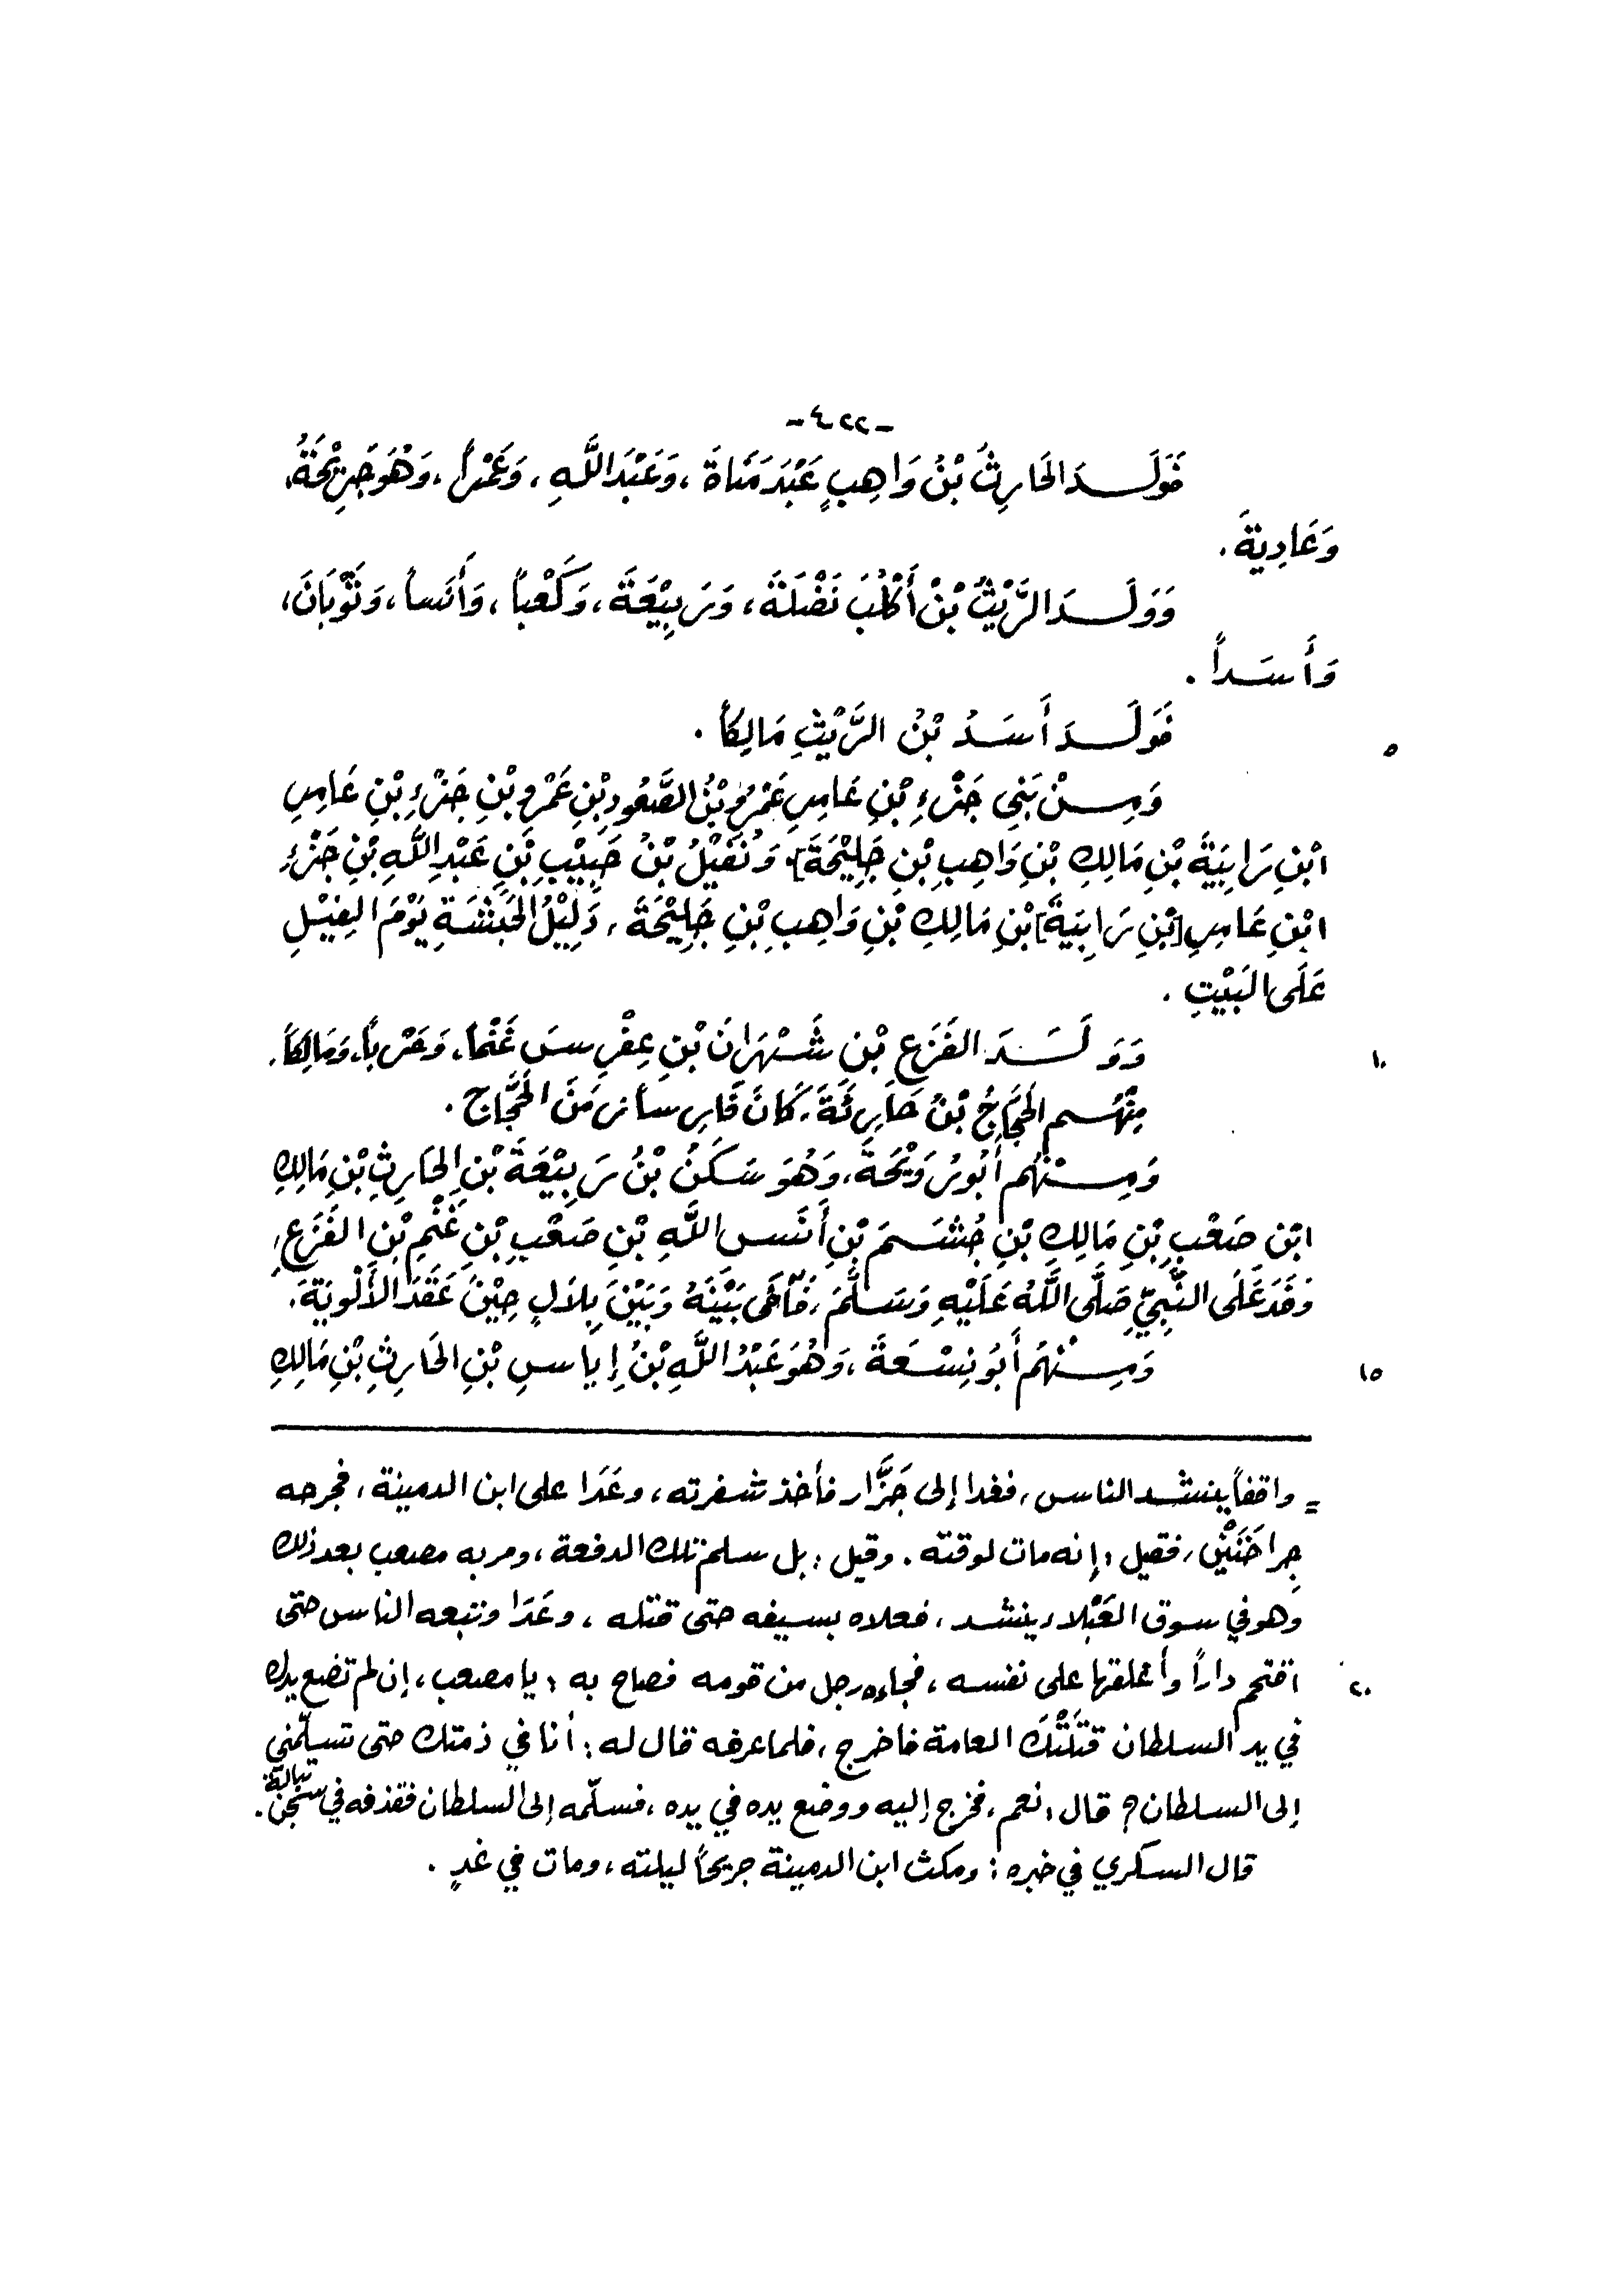 -٤٢٢-
فَوَلَدَ الحَارِثُ بْنُ وَاهِبٍ عَبْدَ مَنَاةَ، وَعَبْدَ اللَّهِ، وَعَمْراً، وَهُوَ جَرِيْحَةُ،
وَعَادِيَةَ.
وَوَلَدَ الرَّيْثُ بْنُ أَكْلُبَ نَضْلَةَ، وَرَبِيْعَةَ، وَكَعْباً، وَأَنَساً، وَثَوْبَانَ،
وَأَسَداً.
٥ فَوَلَدَ أَسَدُ بْنُ الرَّيْثِ مَالِكاً.
وَمِنْ بَنِي جَزْءِ بْنِ عَامِرِ عَمْرُو بْنُ الصَّعُودِ بْنِ عَمْرِو بْنِ جَزْءِ بْنِ عَامِرِ
ابْنِ رَابِيَةَ بْنِ مَالِكِ بْنِ وَاهِبِ بْنِ جَلِيْحَةَ]. وَنُفَيْلُ بْنُ حَبِيْبِ بْنِ عَبْدِ اللَّهِ بْنِ جَزْءِ
ابْنِ عَامِرِ [بْنِ رَابِيَةَ] بْنِ مَالِكِ بْنِ وَاهِبِ بْنِ جَلِيْحَةَ، دَلِيْلُ الحَبَشَةِ يَوْمَ الفِيْلِ
عَلَى البَيْتِ.
١٠ وَوَلَدَ الفَزَعِ بْنِ شَهْرَانَ بْنِ عِفْرِسَ غَنْماً، وَحَرْباً، وَمَالِكاً.
مِنْهُم الحَجَّاجُ بْنُ حَارِثَةَ، كَانَ فَارِساً زَمَنَ الحَجَّاجِ.
وَمِنْهُم أَبُو رُوَيْحَةَ، وَهُوَ سَكَنُ بْنُ رَبِيْعَةَ بْنِ الحَارِثِ بْنِ مَالِكِ
ابْنِ صَعْبِ بْنِ مَالِكِ بْنِ جُشَمَ بْنِ أَنَسِ اللَّهِ بْنِ صَعْبِ بْنِ غَنْمِ بْنِ الفَزَعِ،
وَفَدَ عَلَى النَّبِيِّ صَلَّى اللَّهُ عَلَيْهِ وَسَلَّمَ، فَآخَى بَيْنَهُ وَبَيْنَ بِلاَلٍ حِيْنَ عَقَدَ الأَلْوِيَةَ.
١٥ وَمِنْهُم أَبُو نِسْعَةَ، وَهُوَ عَبْدُ اللَّهِ بْنُ إِيَاسِ بْنِ الحَارِثِ بْنِ مَالِكِ
= واقفاً ينشد الناس، فغدا إلى جَزَّار فأخذ شفرته، وعَدَا على ابن الدمينة، فجرحه
جِراحَتَيْن، فقيل: إنه مات لوقته. وقيل: بل سلم تلك الدفعة، ومر به مصعب بعد ذلك
وهو في سوق العَبْلاء ينشد، فعلاه بسيفه حتى قتله، وعَدَا وتبعه الناس حتى
٢٠ اقتحم داراً وأغلقها على نفسه، فجاءه رجل من قومه فصاح به: يا مصعب، إن لم تضع يدك
في يد السلطان قَتَلَتْكَ العامة فاخرج، فلما عرفه قال له: أنا في ذمتك حتى تسلّمني
إلى السلطان؟ قال: نعم، فخرج إليه ووضع يده في يده، فسلّمه إلى السلطان فقذفه في سجن تبالة.
قال السكري في خبره: ومكث ابن الدمينة جريحاً ليلته، ومات في غدٍ.